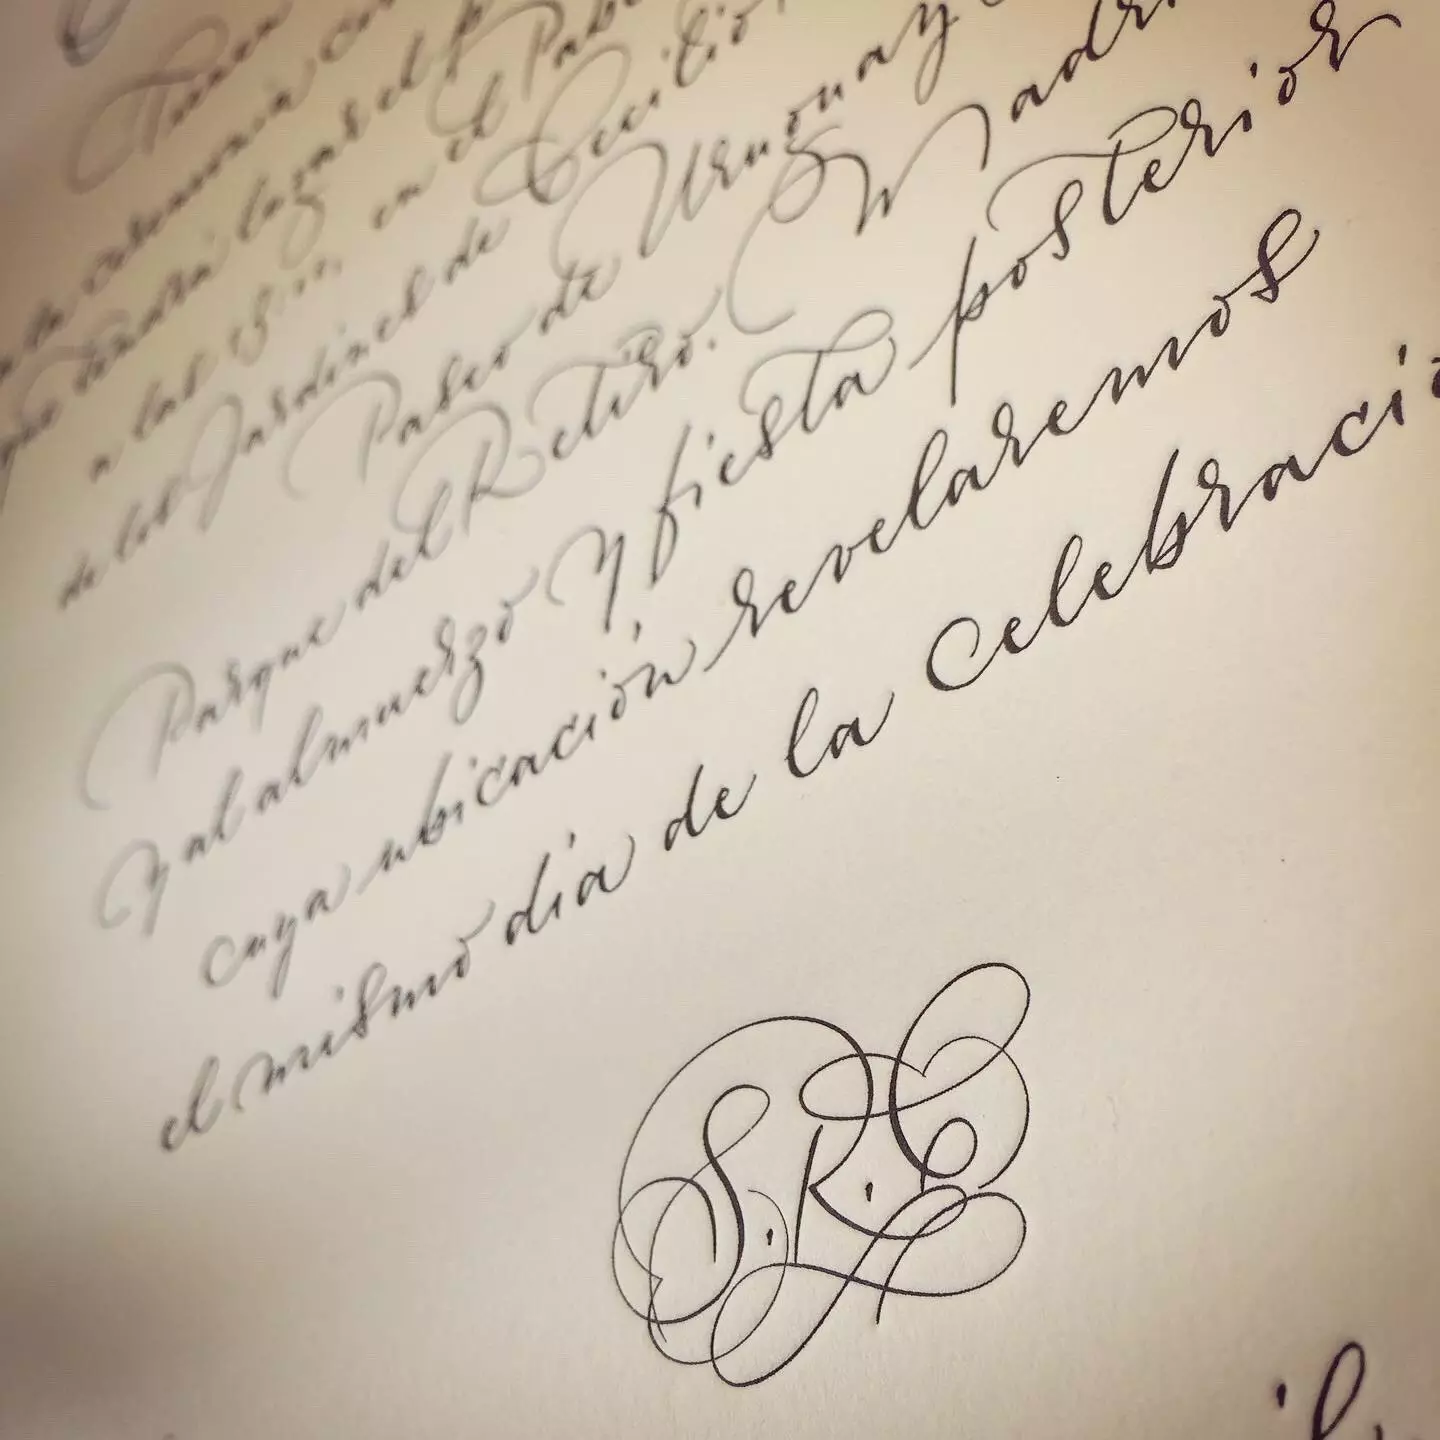 ceremonia
que tendrá lugar el
a las en el
de los Jardines de Cecilio
Paseo de Uruguay
Parque del Retiro. Madr
y al almuerzo y fiesta posterior
cuya ubicación revelaremos
el mismo día de la celebració
S.R.C